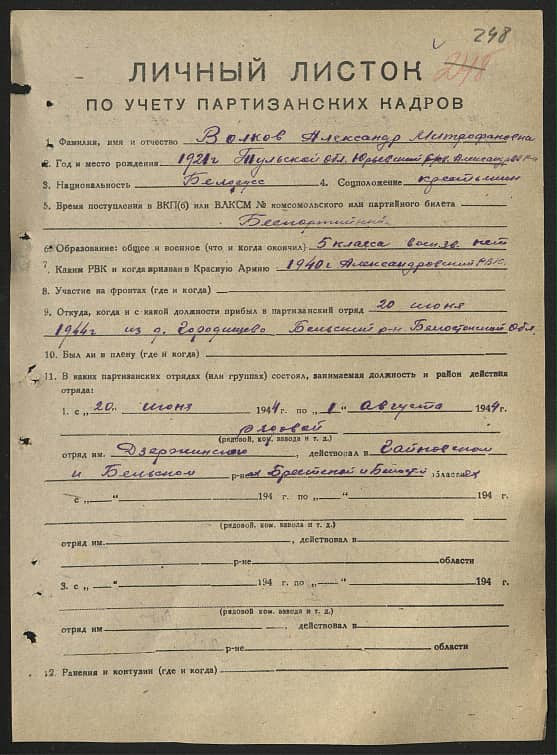 248
248
ЛИЧНЫЙ ЛИСТОК
ПО УЧЕТУ ПАРТИЗАНСКИХ КАДРОВ
1. Фамилия, имя и отчество Волков Александр Митрофанович
2. Год и место рождения 1921г Тульской Обл.
3. Национальность Белорусс 4. Соцположение крестьянин
5. Время поступления в ВКП(б) или ВЛКСМ № комсомольского или партийного билета
Беспартийный
6. Образование: общее и военное (что и когда окончил) 5 класса военн. нет
7. Каким РВК и когда призван в Красную Армию 1940г Александровский РВК.
8. Участие на фронтах (где и когда)
9. Откуда, когда и с какой должности прибыл в партизанский отряд 20 июня
1944г из д. Городищево Бельский р-н Белостокской Обл.
10. Был ли в плену (где и когда)
11. В каких партизанских отрядах (или группах) состоял, занимаемая должность и район действия
отряда:
1. с „20" июня 1944 г. по „1" августа 1944 г.
рядовой
(рядовой, ком. взвода и т. д.)
отряд им. Дзержинского, действовал в Гайновском
и Бельском р-нах Брестской и области
с „ " 194 г. по „ " 194 г.
(рядовой, ком. взвода и т. д.)
отряд им. , действовал в
р-не области
3. с „ " 194 г. по „ " 194 г.
(рядовой, ком. взвода и т. д.)
отряд им , действовал в
р-не области
12. Ранения и контузии (где и когда)